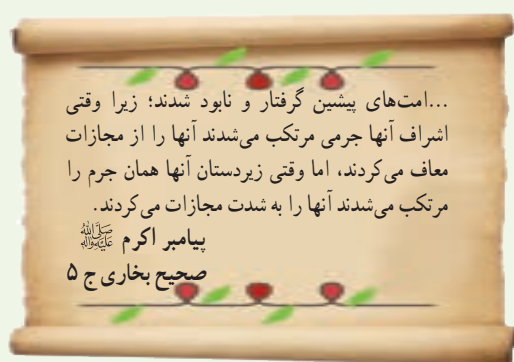 ...امت‌های پیشین گرفتار و نابود شدند؛ زیرا وقتی
اشراف آنها جرمی مرتکب می‌شدند آنها را از مجازات
معاف می‌کردند، اما وقتی زیردستان آنها همان جرم را
مرتکب می‌شدند آنها را به شدت مجازات می‌کردند.
پیامبر اکرم صلی الله علیه وآله
صحیح بخاری ج ۵